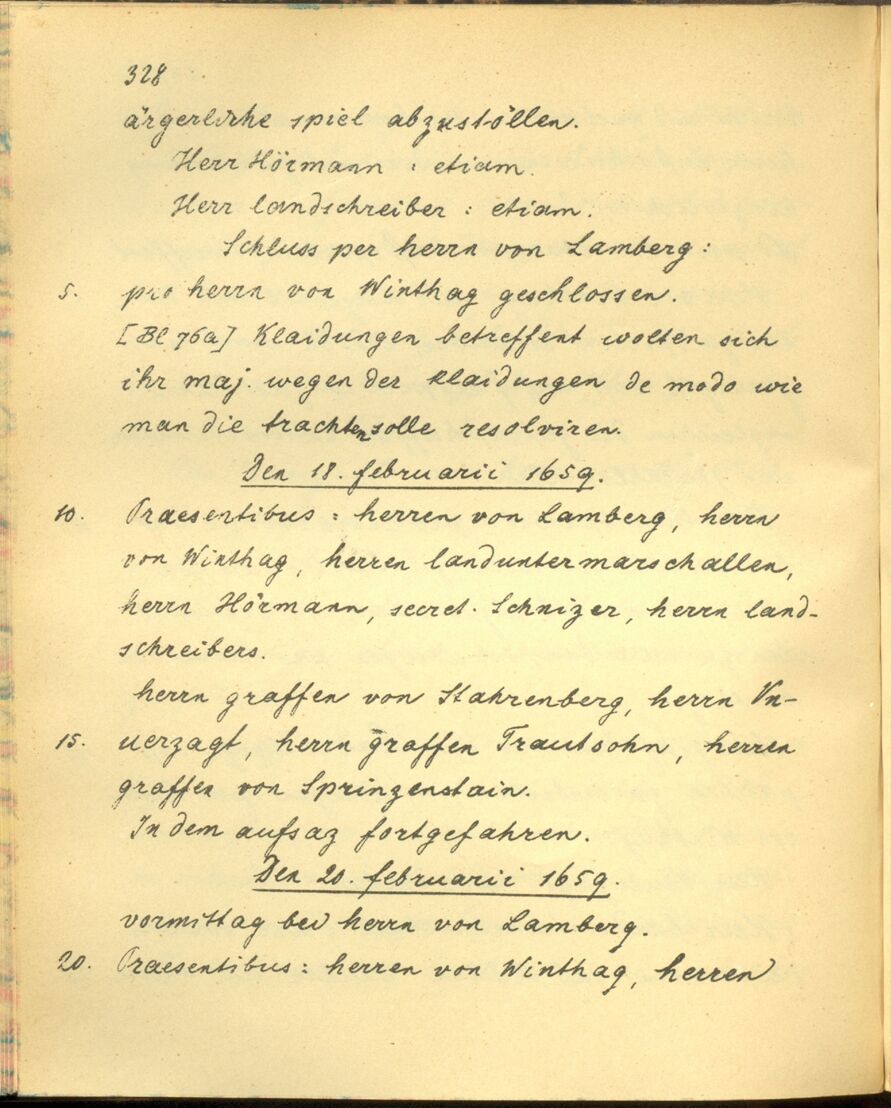 328
ärgerliche spiel abzustöllen.
Herr Hörmann : etiam.
Herr landschreiber : etiam.
Schluss per herrn von Lamberg :
5. pro herrn von Winthag geschlossen.
[Bl 76a] Klaidungen betreffent wolten sich
ihr maj. wegen der klaidungen de modo wie
man die trachten solle resolviren.
Den 18. februarii 1659.
10. Praesentibus : herren von Lamberg, herrn
von Winthag, herren landuntermarschallen,
herrn Hörmann, secret. Schnizer, herrn land-
schreibers.
herrn graffen von Stahrenberg, herrn Vn-
15. uerzagt, herrn graffen Trautsohn, herren
graffen von Sprinzenstain.
In dem aufsaz fortgefahren.
Den 20. februarii 1659.
vormittag bei herrn von Lamberg.
20. Praesentibus : herren von Winthag, herren